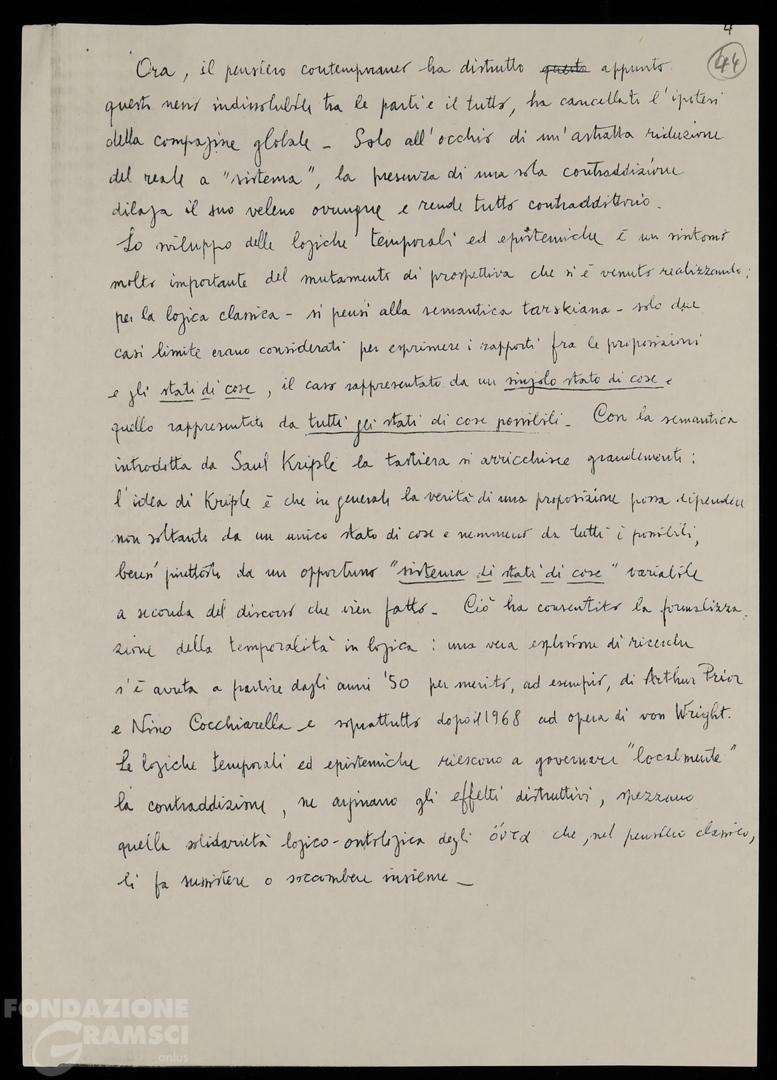 4
44
Ora, il pensiero contemporaneo ha distrutto questo appunto
questo nesso indissolubile tra le parti e il tutto, ha cancellato l'ipotesi
della compagine globale – Solo all'occhio di un'astratta riduzione
del reale a "sistema", la presenza di una sola contraddizione
dilaga il suo veleno ovunque e rende tutto contraddittorio.
Lo sviluppo delle logiche temporali ed epistemiche è un sintomo
molto importante del mutamento di prospettiva che si è venuto realizzando:
per la logica classica – si pensi alla semantica tarskiana – solo due
casi limite erano considerati per esprimere i rapporti fra le proposizioni
e gli stati di cose, il caso rappresentato da un singolo stato di cose e
quello rappresentato da tutti gli stati di cose possibili – Con la semantica
introdotta da Saul Kriple la tastiera si arricchisce grandemente:
l'idea di Kriple è che in generale la verità di una proposizione possa dipendere
non soltanto da un unico stato di cose e nemmeno da tutti i possibili,
bensì piuttosto da un opportuno "sistema di stati di cose" variabile
a seconda del discorso che vien fatto – Ciò ha consentito la formalizza-
zione della temporalità in logica: una vera esplosione di ricerche
s'è avuta a partire dagli anni '50 per merito, ad esempio, di Arthur Prior
e Nino Cocchiarella e soprattutto dopo il 1968 ad opera di von Wright.
Le logiche temporali ed epistemiche riescono a governare "localmente"
la contraddizione, ne arginano gli effetti distruttivi, spezzano
quella solidarietà logico-ontologica degli ὄντα che, nel pensiero classico,
li fa sussistere o soccombere insieme –
FONDAZIONE
GRAMSCI
onlus